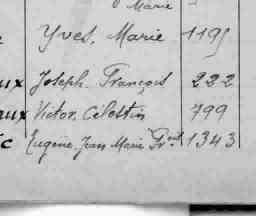 Marie
Yves, Marie 1195
ux Joseph. François 222
aux Victor. Célestin 799
c Eugène. Jean Marie Frçois 1343